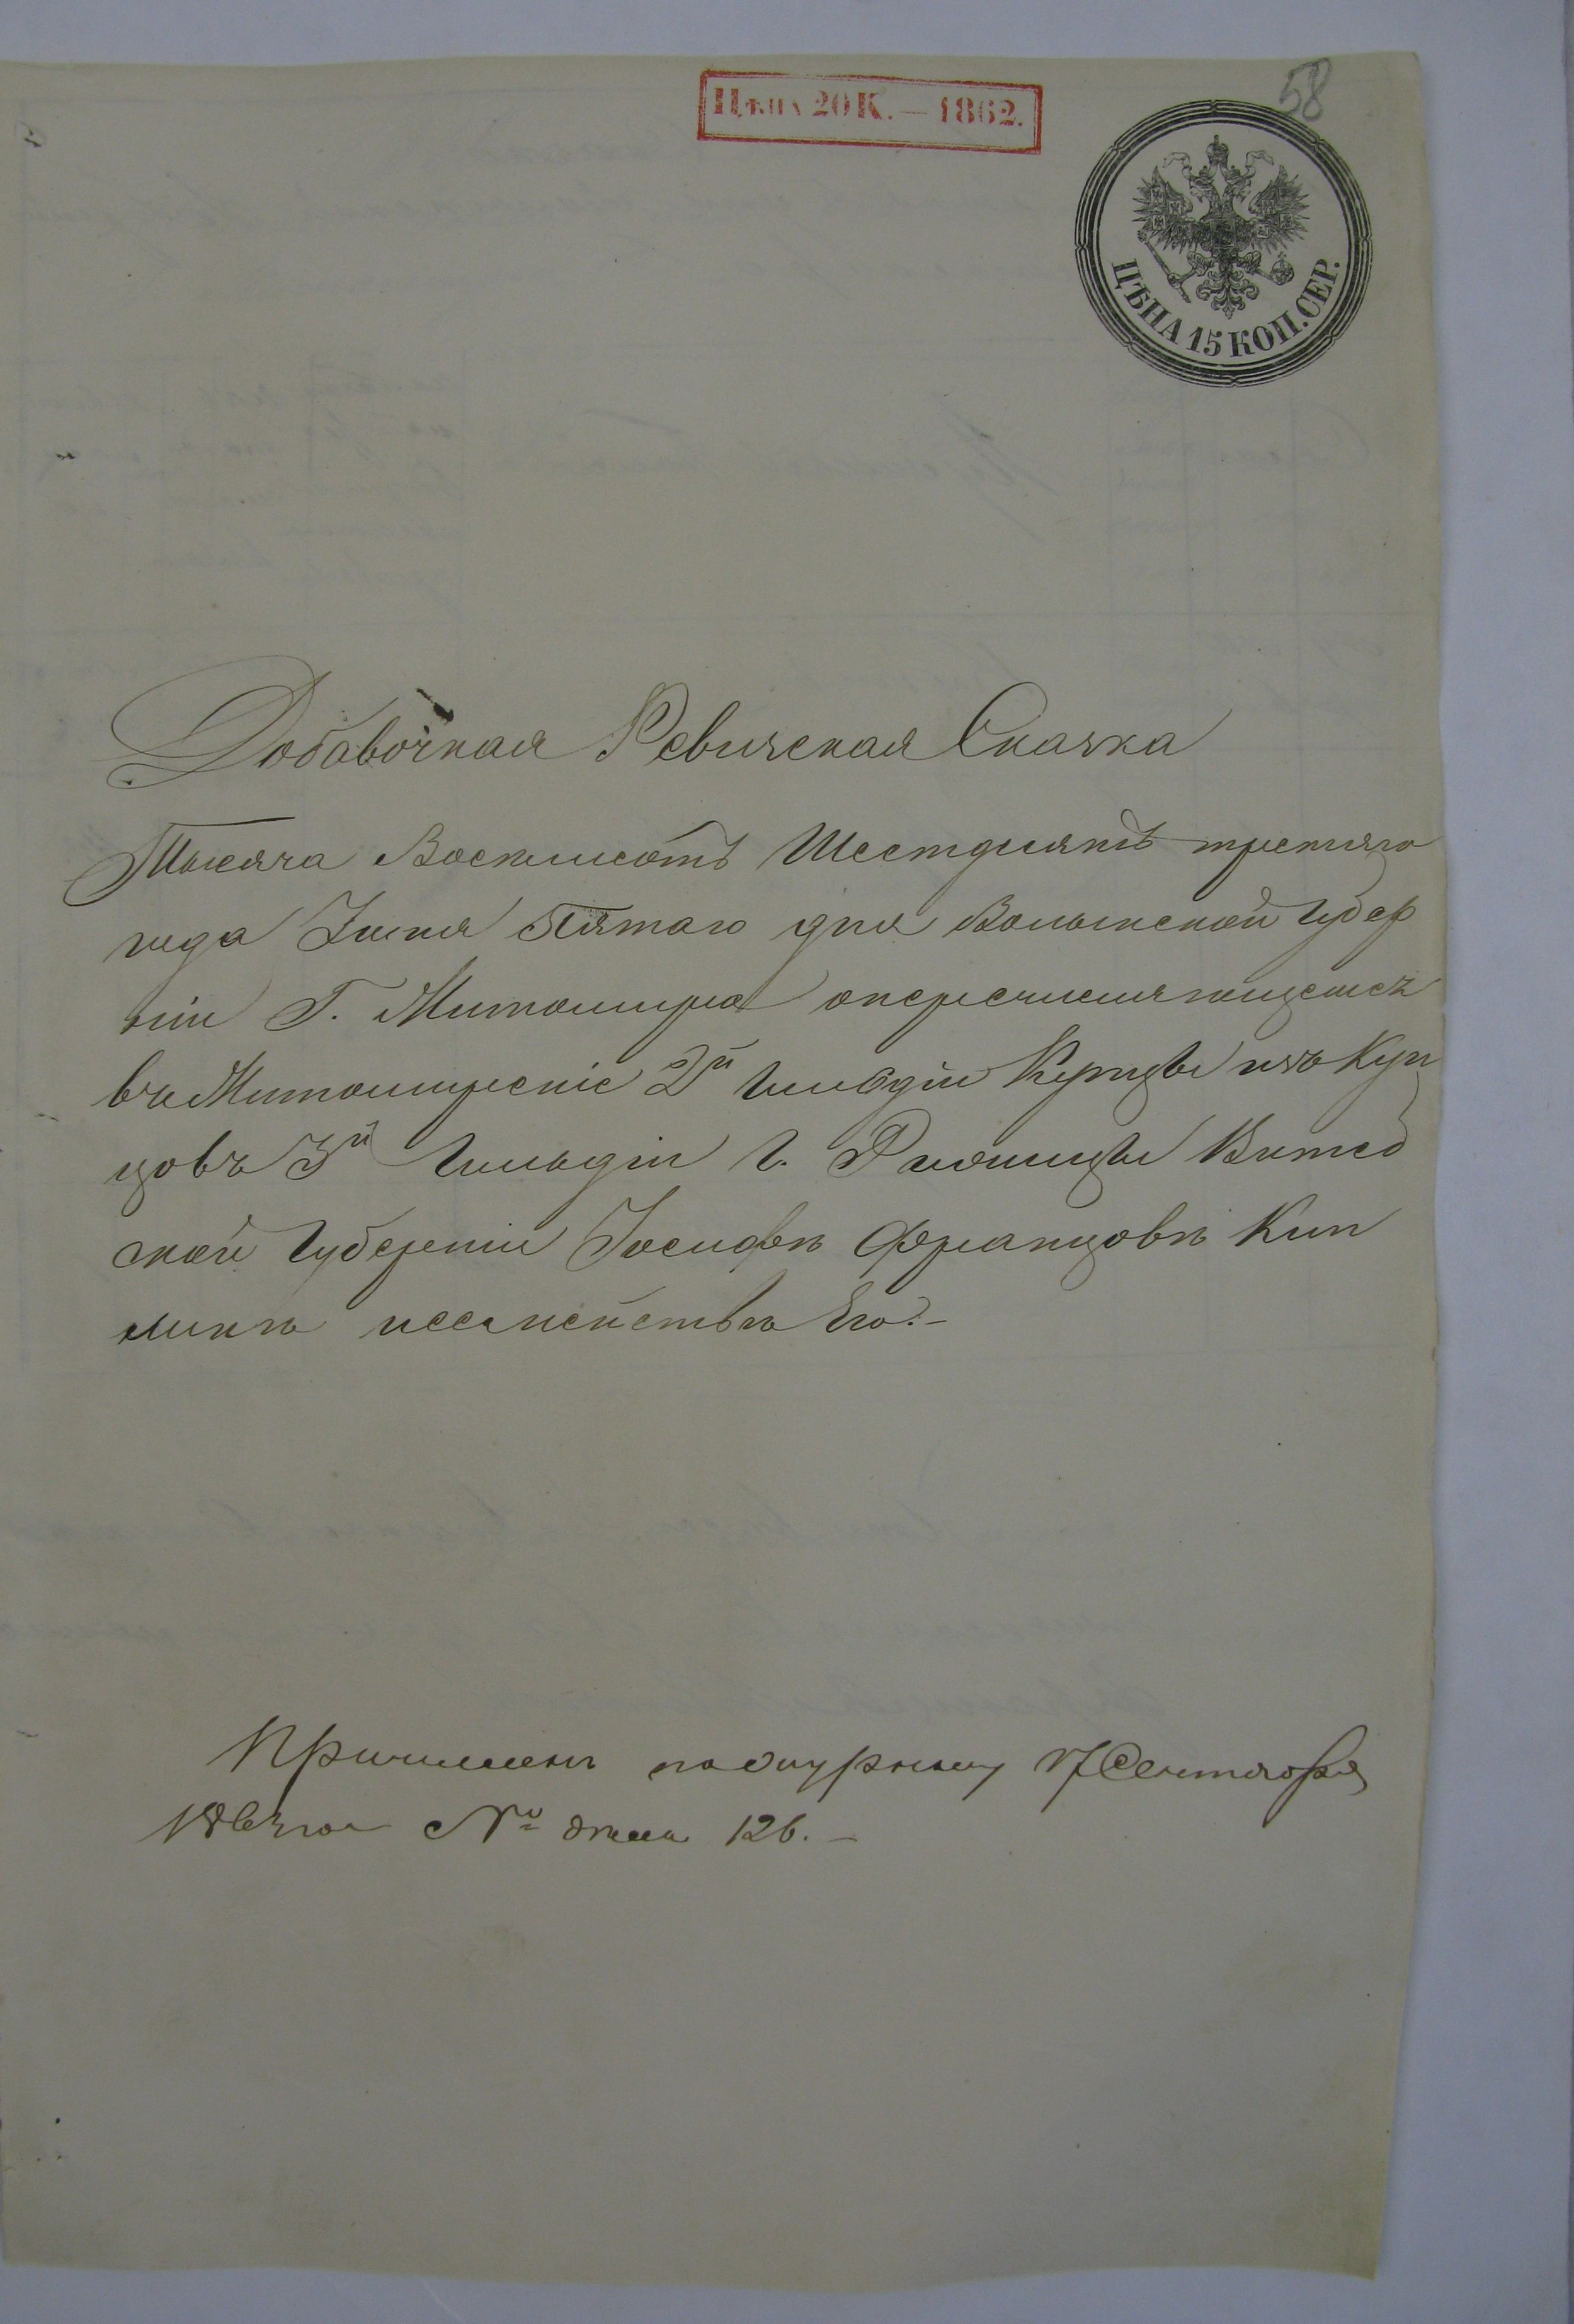 58
Цѣна 20 К. — 1862.
ЦѢНА 15 КОП. СЕР.
Добавочная Ревизская Сказка
Тысяча Восемьсотъ Шестдесятъ третяго
года Іюня Пятаго дня Волынской Губер
ніи Г. Житомира о перечисляющемся
въ Житомирскіе 2й Гильдіи Купцы изъ Куп
цовъ 3й Гильдіи г. Режицы Витеб
ской Губерніи Іосифѣ Францовѣ
и семействѣ Его.-
Причисленъ по журналу 17 Сентября
№ дѣла 126. -